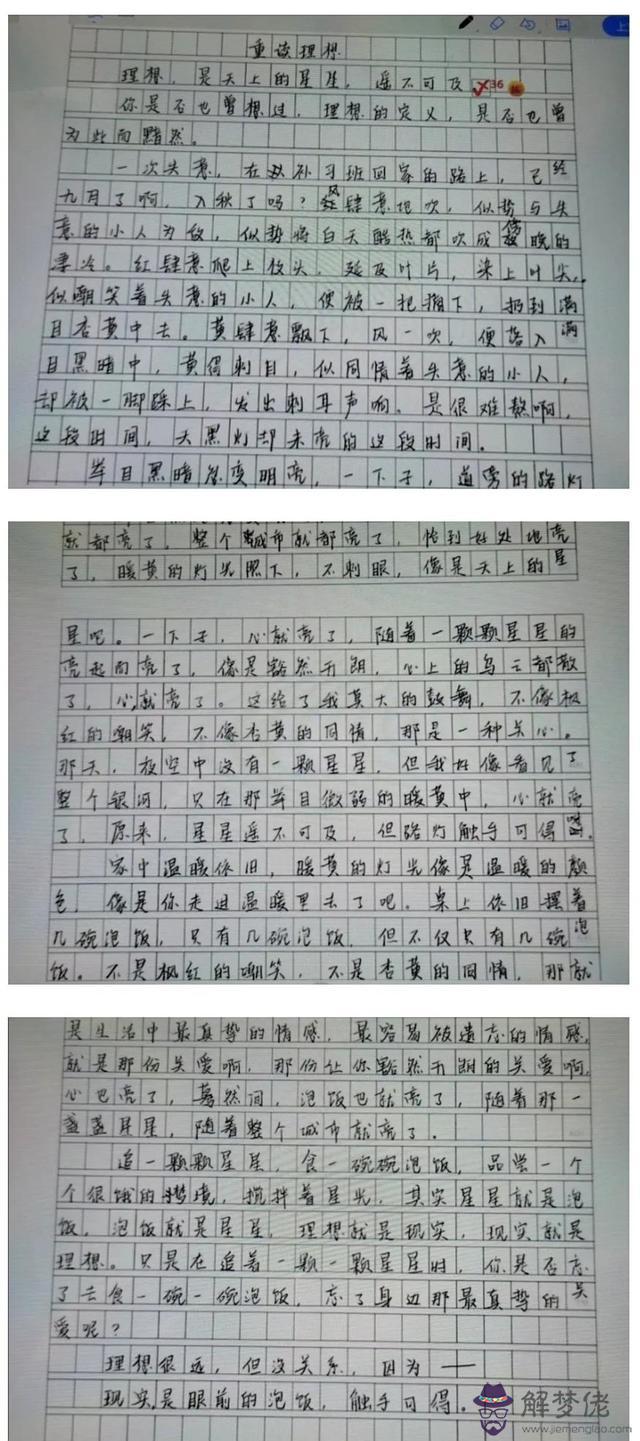 重读理想
理想，是天上的星星，遥不可及。 36
你是否也曾想过，理想的定义，是否也曾
为此而黯然。
一次失意，在从补习班回家的路上，已经
九月了啊，入秋了吗？风肆意地吹，似势与失
意的小人为敌，似势将白天酷热都吹成傍晚的
凄冷。红肆意爬上枝头，延及叶片，染上叶尖，
似嘲笑着失意的小人，便被一把摘下，扔到满
目杏黄中去。黄肆意飘下，风一吹，便落入满
目黑暗中，黄得刺目，似同情着失意的小人，
却被一脚踩上，发出刺耳声响。是很难熬啊，
这段时间，天黑灯却未亮的这段时间。
举目黑暗忽变明亮，一下子，道旁的路灯
就都亮了，整个城市就都亮了，恰到好处地亮
了，暖黄的灯光照下，不刺眼，像是天上的星
星吧。一下子，心就亮了，随着一颗颗星星的
亮起而亮了，像是豁然开朗，心上的乌云都散
了，心就亮了。这给了我莫大的鼓舞，不像枫
红的嘲笑，不像杏黄的同情，那是一种关心。
那天，夜空中没有一颗星星，但我好像看见了
整个银河，只在那举目微弱的暖黄中，心就亮
了，原来，星星遥不可及，但路灯触手可得啊。
家中温暖依旧，暖黄的灯光像是温暖的颜
色，像是你走进温暖里去了吧。桌上依旧摆着
几碗泡饭，只有几碗泡饭，但不仅只有几碗泡
饭。不是枫红的嘲笑，不是杏黄的同情，那就
是生活中最真挚的情感，最容易被遗忘的情感，
就是那份关爱啊，那份让你豁然开朗的关爱啊，
心也亮了，蓦然间，泡饭也就亮了，随着那一
盏盏星星，随着整个城市就亮了。
追一颗颗星星，食一碗碗泡饭，品尝一个
个很饿的梦境，搅拌着星光，其实星星就是泡
饭，泡饭就是星星，理想就是现实，现实就是
理想。只是在追着一颗一颗星星时，你是否忘
了去食一碗一碗泡饭，忘了身边那最真挚的关
爱呢？
理想很远，但没关系，因为——
现实是眼前的泡饭，触手可得。
解梦佬
www.jiemenglao.com